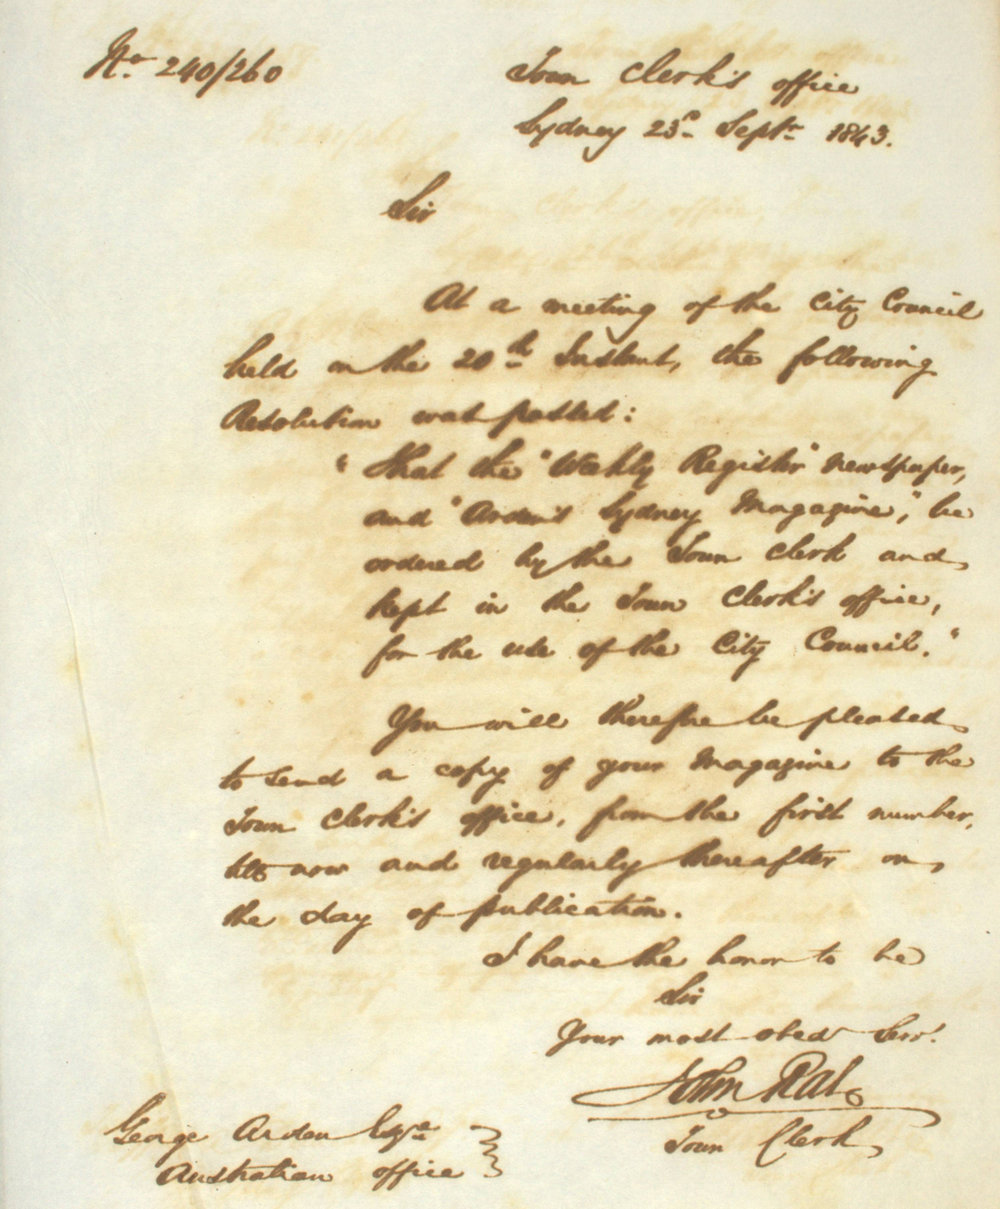 No. 240/260
Town Clerk's office
Sydney 23d. Septr. 1843.
Sir
At a meeting of the City Council
held on the 20th Instant, the following
Resolution was passed:
"That the "Weekly Register" newspaper,
and "Arden's Sydney Magazine", be
ordered by the Town Clerk and
kept in the Town Clerk's office,
for the use of the City Council."
You will therefore be pleased
to send a copy of your Magazine to the
Town Clerk's office, from the first number,
till now and regularly thereafter on
the day of publication.
I have the honor to be
Sir
Your most obed Serv.
John Rae
Town Clerk
George Arden Esqre
Australian office